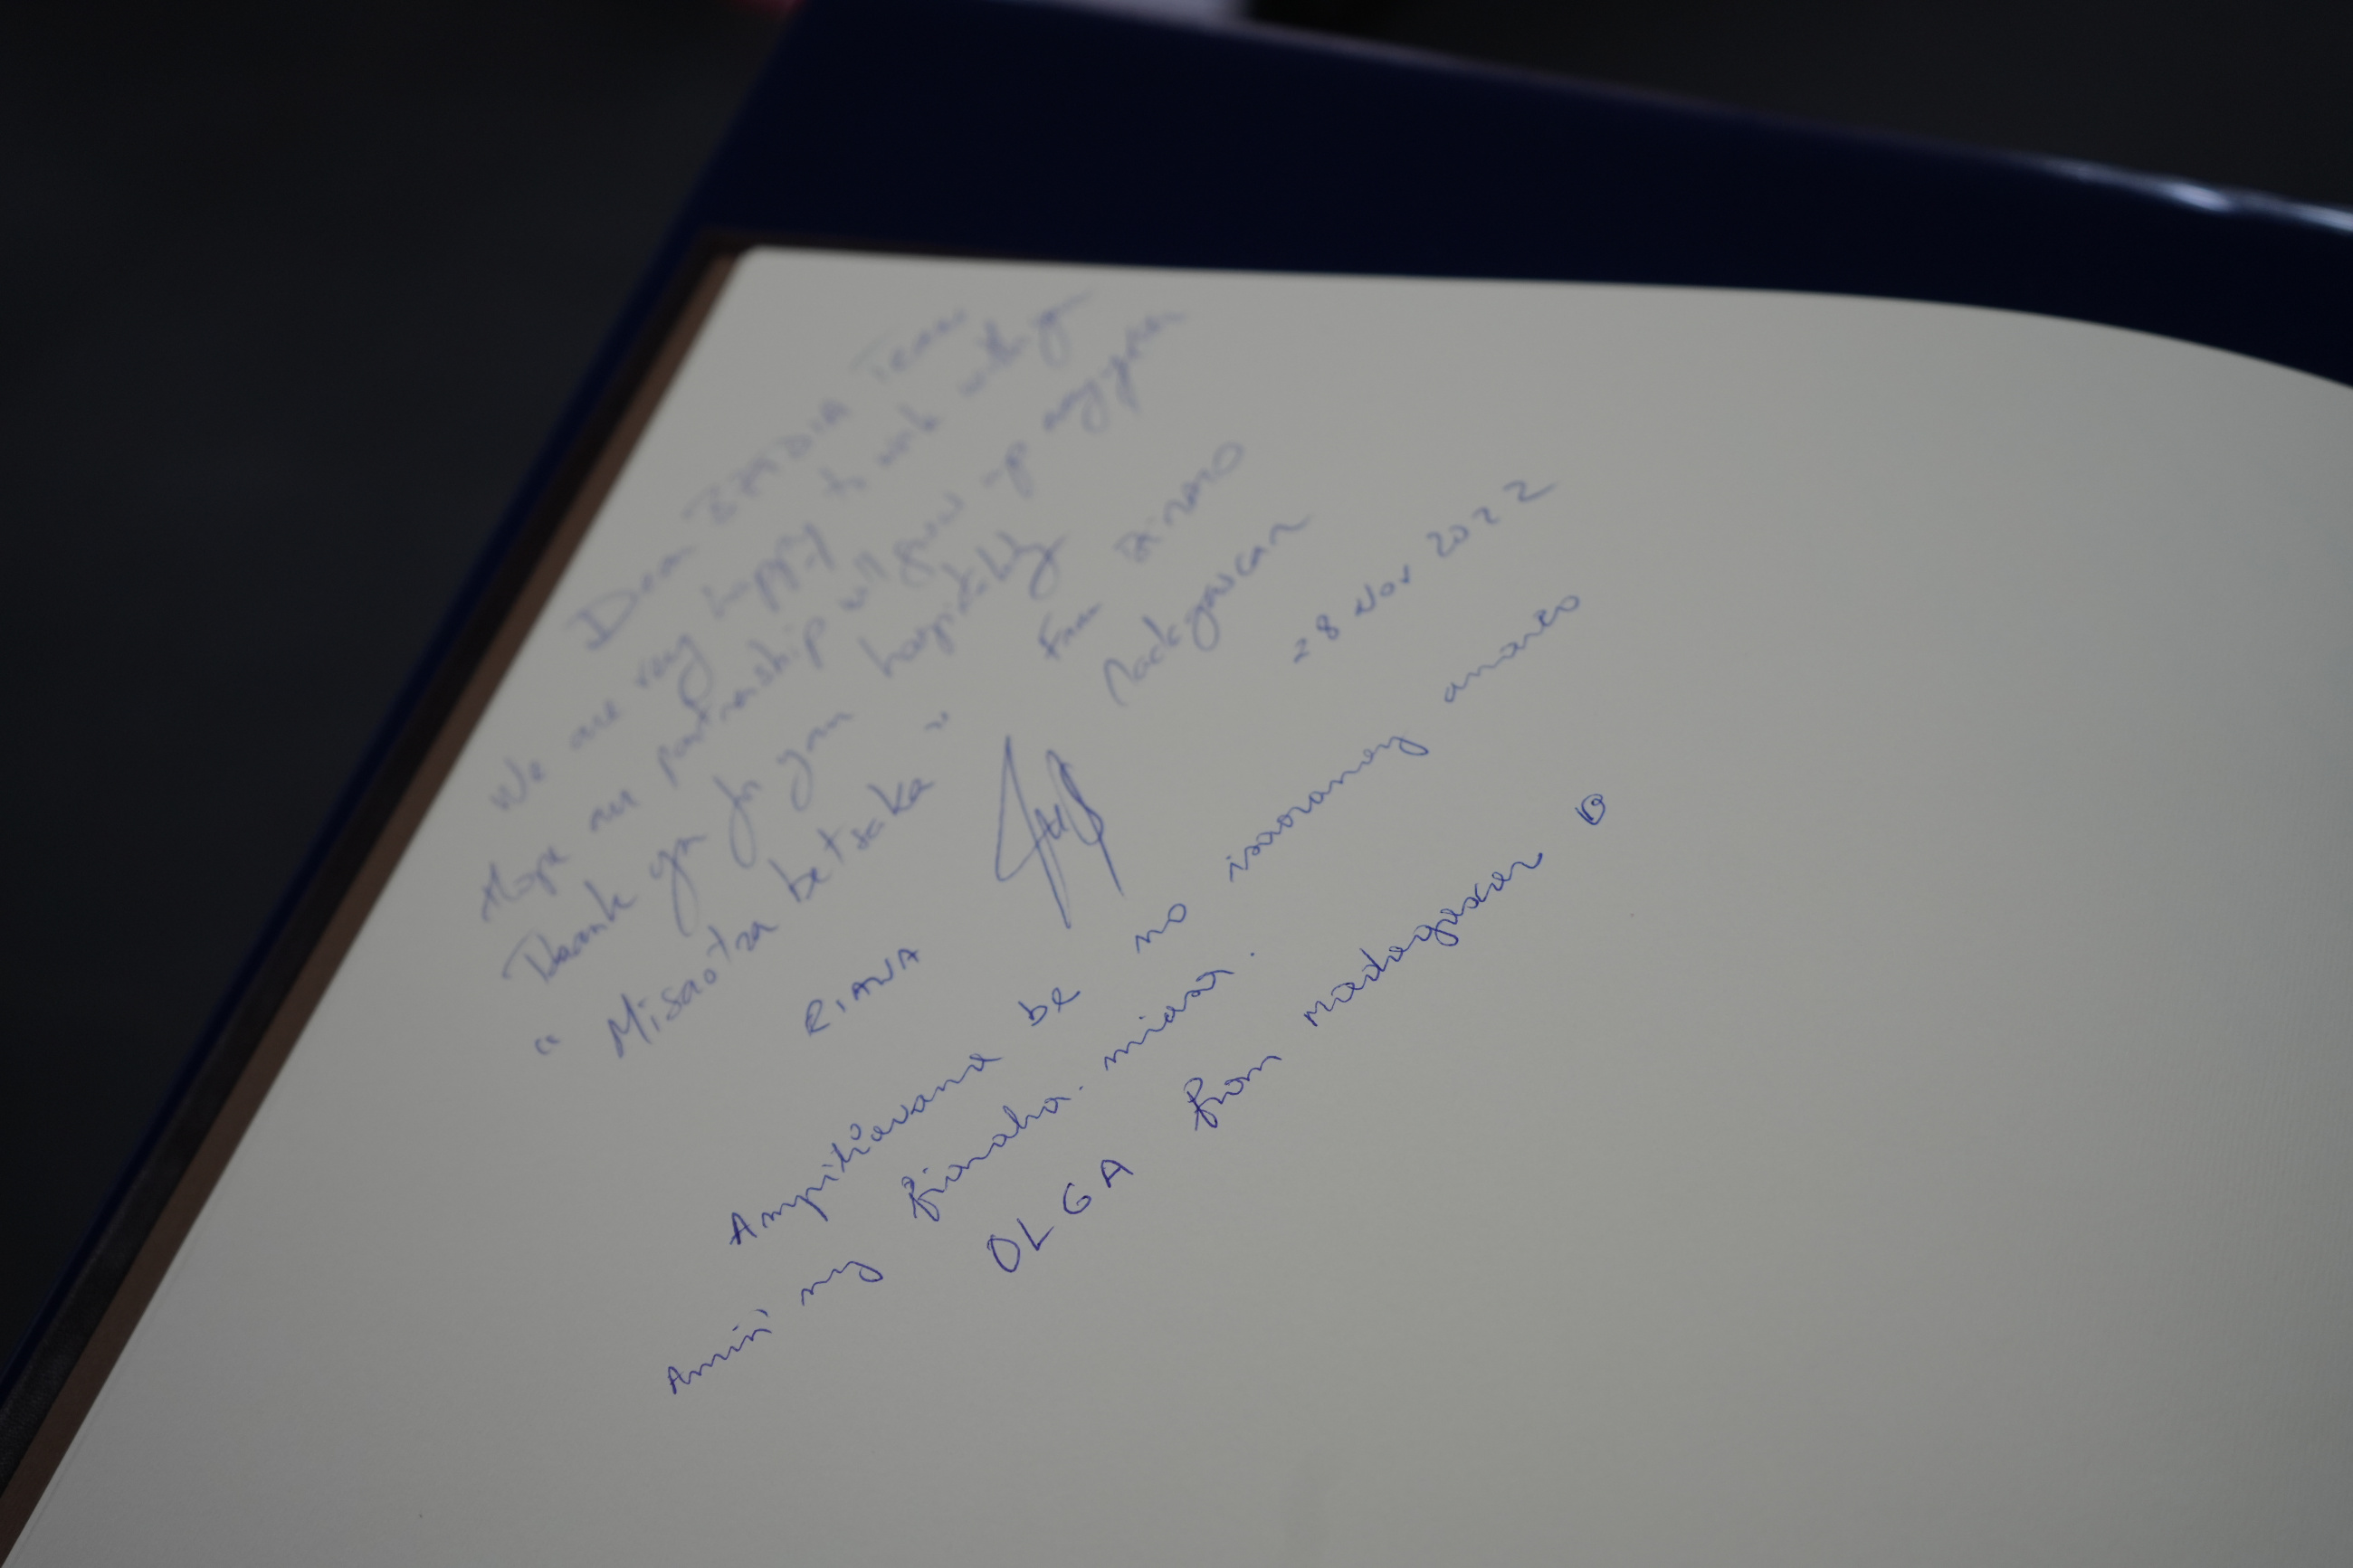 Dear Team
We are very happy to work with y
Hope our partnership will grow up any year
Thank you for your hospitality
" Misaotra betsaka "
From DINARO
Madagascar
28 Nov 2022
RIANA
Ampitiavana be no isaoranay anareo
Amin'ny finaha. miaraa.
OLGA from madagascar